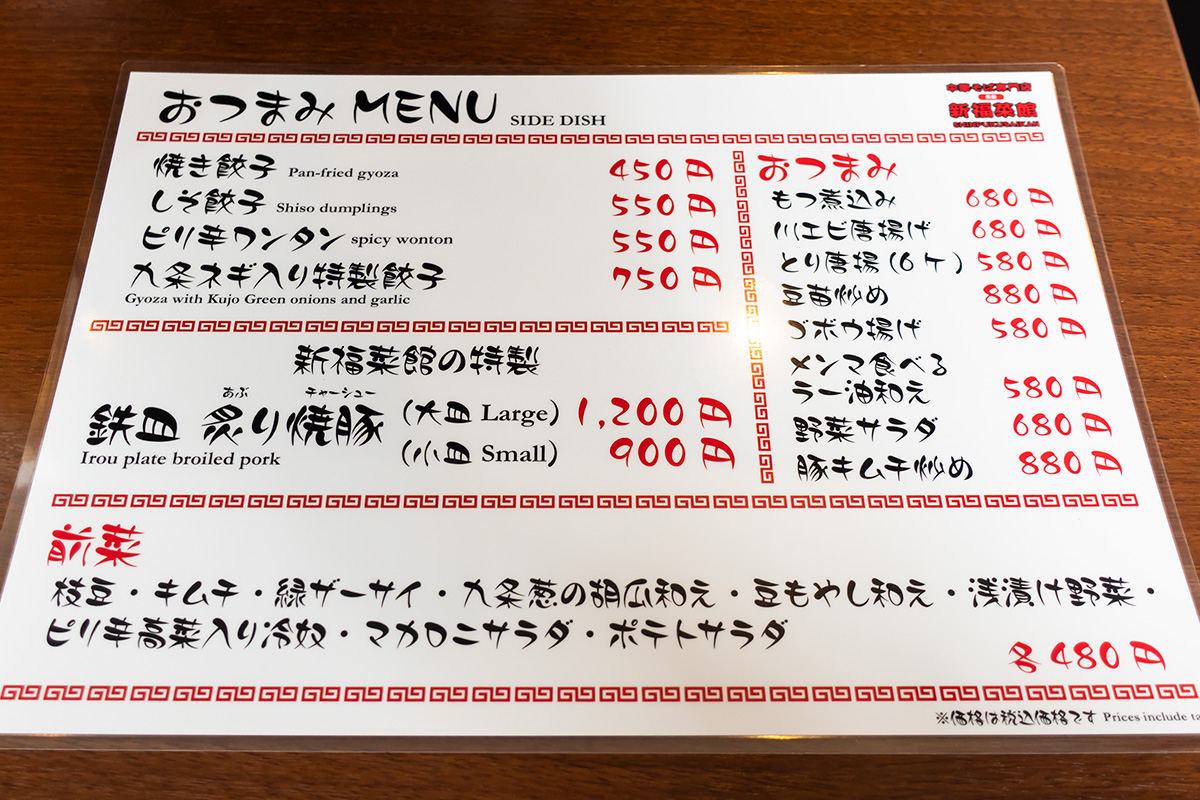 おつまみ MENU SIDE DISH
中華そば専門店
新福菜館
SHINPUKUSAIKAN
焼き餃子 Pan-fried gyoza 450円
しそ餃子 Shiso dumplings 550円
ピリ辛ワンタン spicy wonton 550円
九条ネギ入り特製餃子 750円
Gyoza with Kujo Green onions and garlic
新福菜館の特製
あぶ チャーシュー
鉄皿 炙り焼豚 (大皿 Large) 1,200円
(小皿 Small) 900円
Irou plate broiled pork
おつまみ
もつ煮込み 680円
川エビ唐揚げ 680円
とり唐揚(6ケ) 580円
豆苗炒め 880円
ゴボウ揚げ 580円
メンマ食べる
ラー油和え 580円
野菜サラダ 680円
豚キムチ炒め 880円
前菜
枝豆・キムチ・緑ザーサイ・九条葱の胡瓜和え・豆もやし和え・浅漬け野菜・
ピリ辛高菜入り冷奴・マカロニサラダ・ポテトサラダ
各480円
※価格は税込価格です Prices include ta